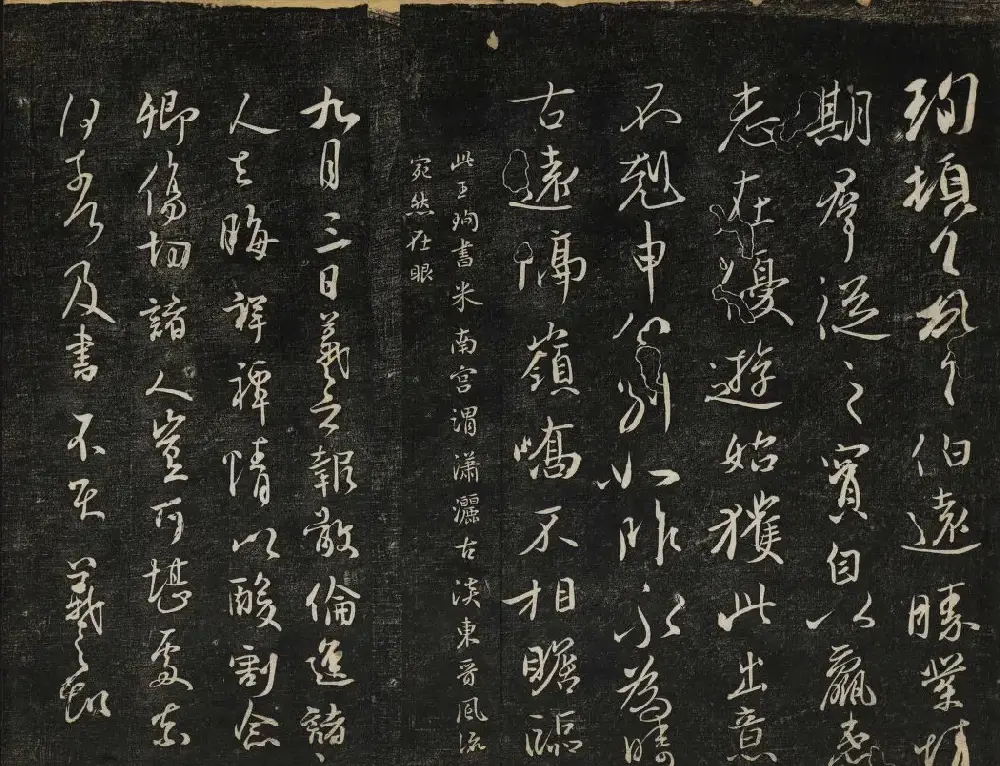 珣頓首頓首伯遠勝業情
期群從之寶自以羸患
志在優遊始獲此出意
不剋申分別如昨永為疇
古遠隔嶺嶠不相瞻臨
此王珣書米南宮謂瀟灑古淡東晉風流
宛然在眼
九月三日羲之報敬倫遮諸
人去晦祥禫情以酸割念
卿傷切諸人豈可堪處奈
何奈何及書不具羲之頓